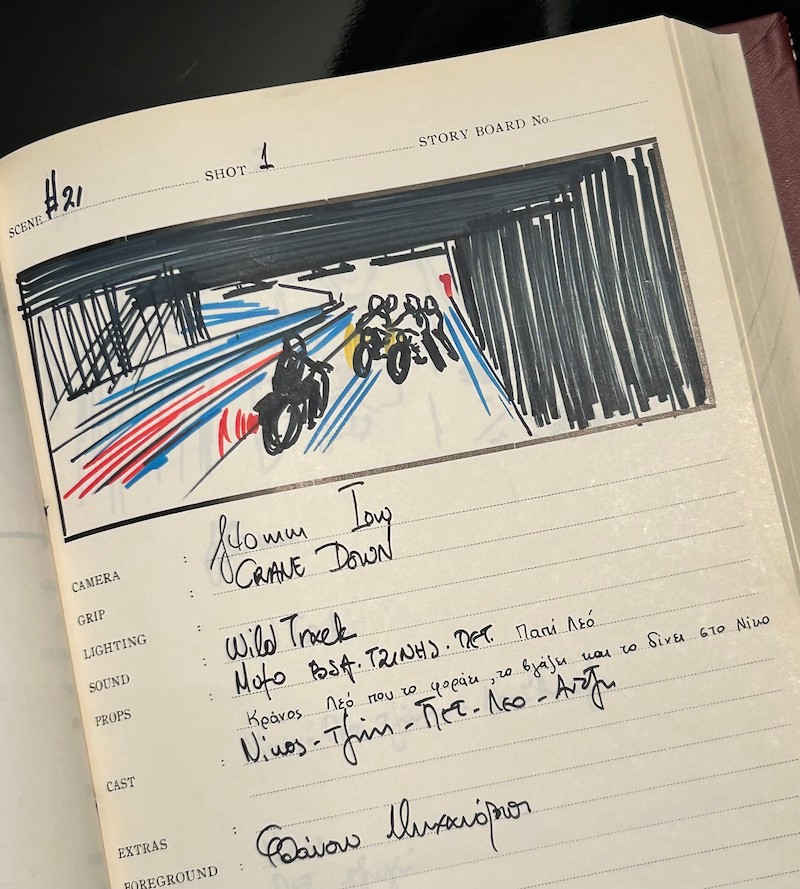 SCENE #21 SHOT 1 STORY BOARD No
CAMERA : 40mm Low
GRIP : CRANE DOWN
LIGHTING :
SOUND : Wild Track
PROPS : Μοτο BSA. ΤΖΙΝΗΣ. ΠΕΤ. Παπί Λεό
Κράνος Λεό που το φοράει, το βγάζει και το δίνει στο Νίκο
CAST : Νίκος - Τζίνη - Πετ - Λεο
EXTRAS :
FOREGROUND : Φθάνουν Μηχανόβιοι